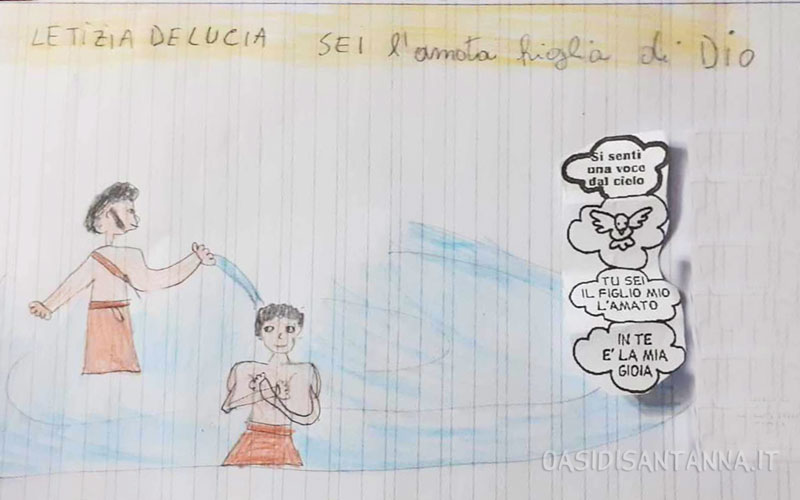 LETIZIA DELUCIA SEI l'amata figlia di Dio
Si sentì
una voce
dal cielo
TU SEI
IL FIGLIO MIO
L'AMATO
IN TE
E' LA MIA
GIOIA
OASIDISANTANNA.IT